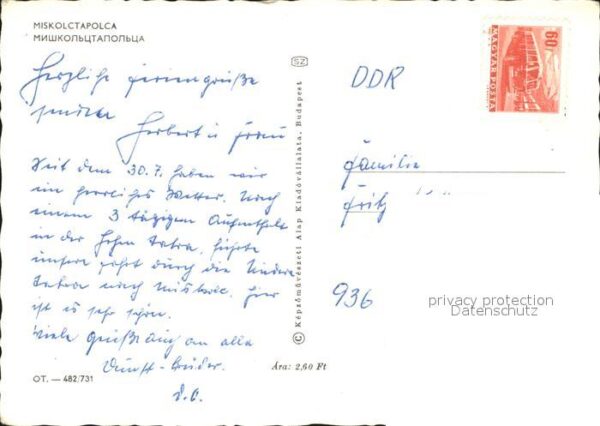 MISKOLCTAPOLCA
МИШКОЛЬЦТАПОЛЬЦА
Herzliche Feriengrüße
senden
Herbert u Frau
Seit dem 30.7. haben wir
ein herrliches Wetter. Nach
einem 3 tägigen Aufenthalt
in der Hohen Tatra, führte
unsere Fahrt durch die Niedere
Tatra nach Miskolc. Hier
ist es sehr schön.
Viele Grüße auch an alle
d.O.
OT. — 482/731
SZ
© Képzőművészeti Alap Kiadóvállalata, Budapest
Ára: 2,60 Ft
60f
MAGYAR POSTA
DDR
Familie
Fritz
936
privacy protection
Datenschutz